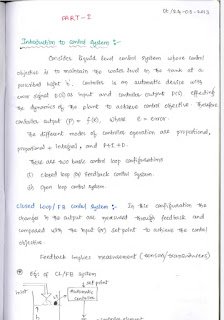 PART-I
Introduction to control system :-
Consider liquid level control system whose control
objective is to maintain the water level in the tank at a
prescribed height 'h'. Controller is an automatic device with
error signal e(t) as input and controller output p(t) effecting
the dynamics of the plant to achieve control objective. Therefore
controller output (P) = f(e), where e = error.
The different modes of controller operation are proportional,
proportional + integral, and P+I+D.
There are two basic control loop configurations
(i) Closed loop (or) Feedback control system
(ii) Open loop control system.
Closed loop/FB control system :- In this configuration the
changes in the output are measured through feedback and
compared with the input (or) set point to achieve the control
objective.
Feedback implies measurement (sensor/transducers)
Eg: of CL/FB system
set point
inlet
Automatic
controller